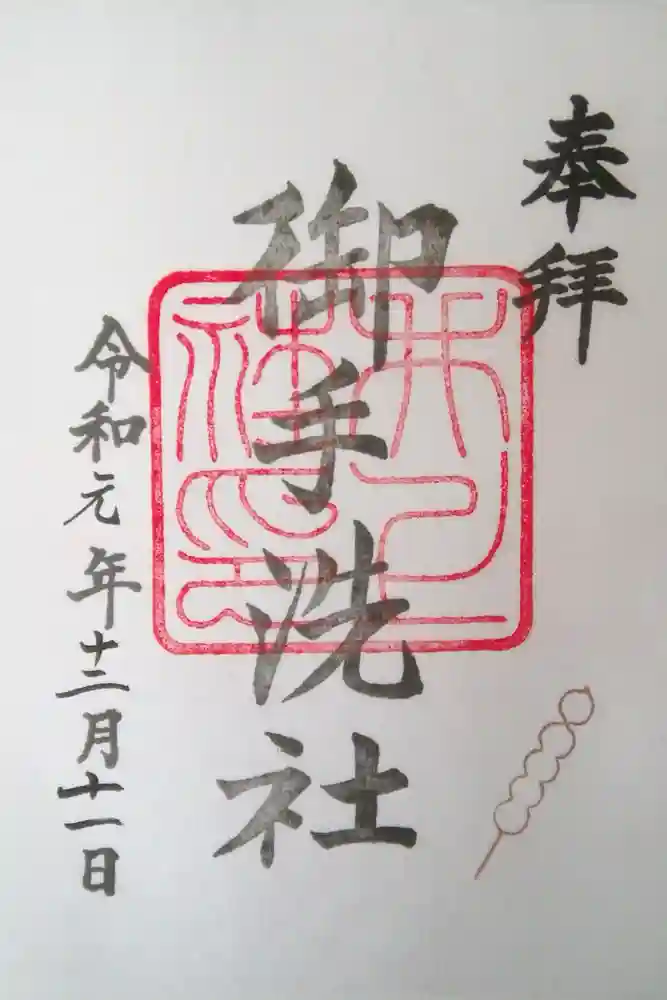 奉拝
御手洗社
令和元年十二月十一日